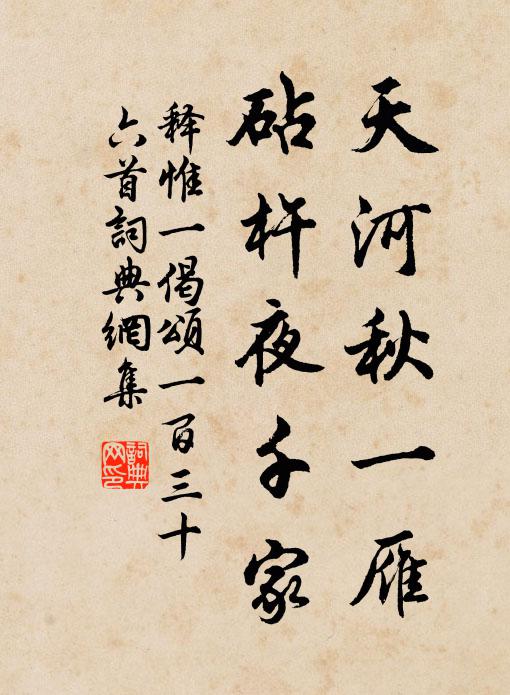 天河秋一雁
砧杵夜千家
释惟一偈頌一百三十
六首詞典網集
詞典
网印